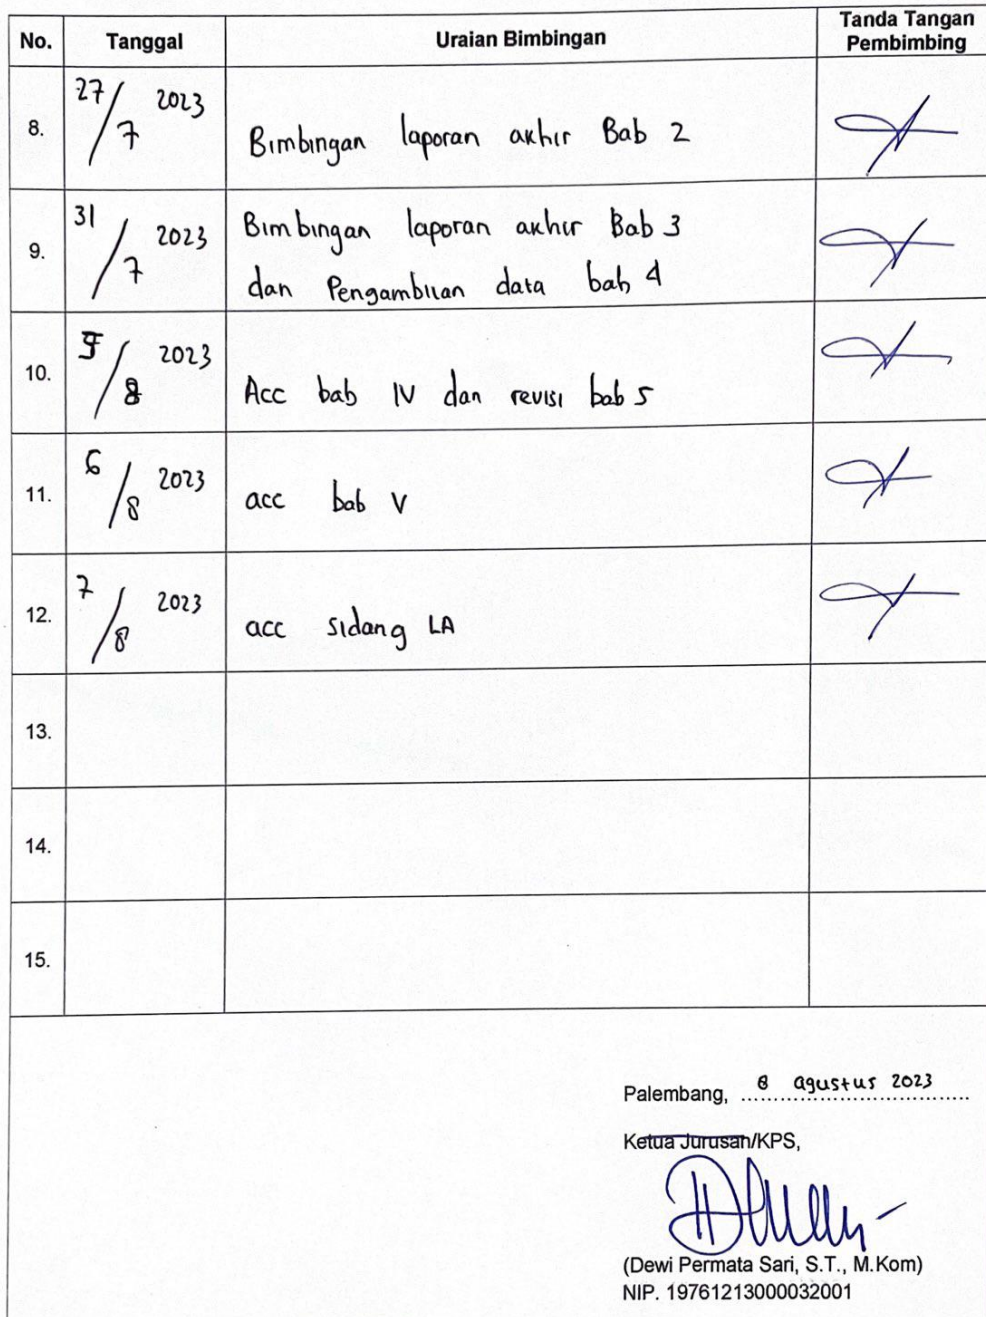 No. Tanggal Uraian Bimbingan Tanda Tangan Pembimbing
8. 27/7 2023 Bimbingan laporan akhir Bab 2
9. 31/7 2023 Bimbingan laporan akhir Bab 3
dan Pengambilan data bab 4
10. 5/8 2023 Acc bab IV dan revisi bab 5
11. 6/8 2023 acc bab V
12. 7/8 2023 acc sidang LA
13.
14.
15.
Palembang, 8 agustus 2023
Ketua Jurusan/KPS,
(Dewi Permata Sari, S.T., M.Kom)
NIP. 19761213000032001